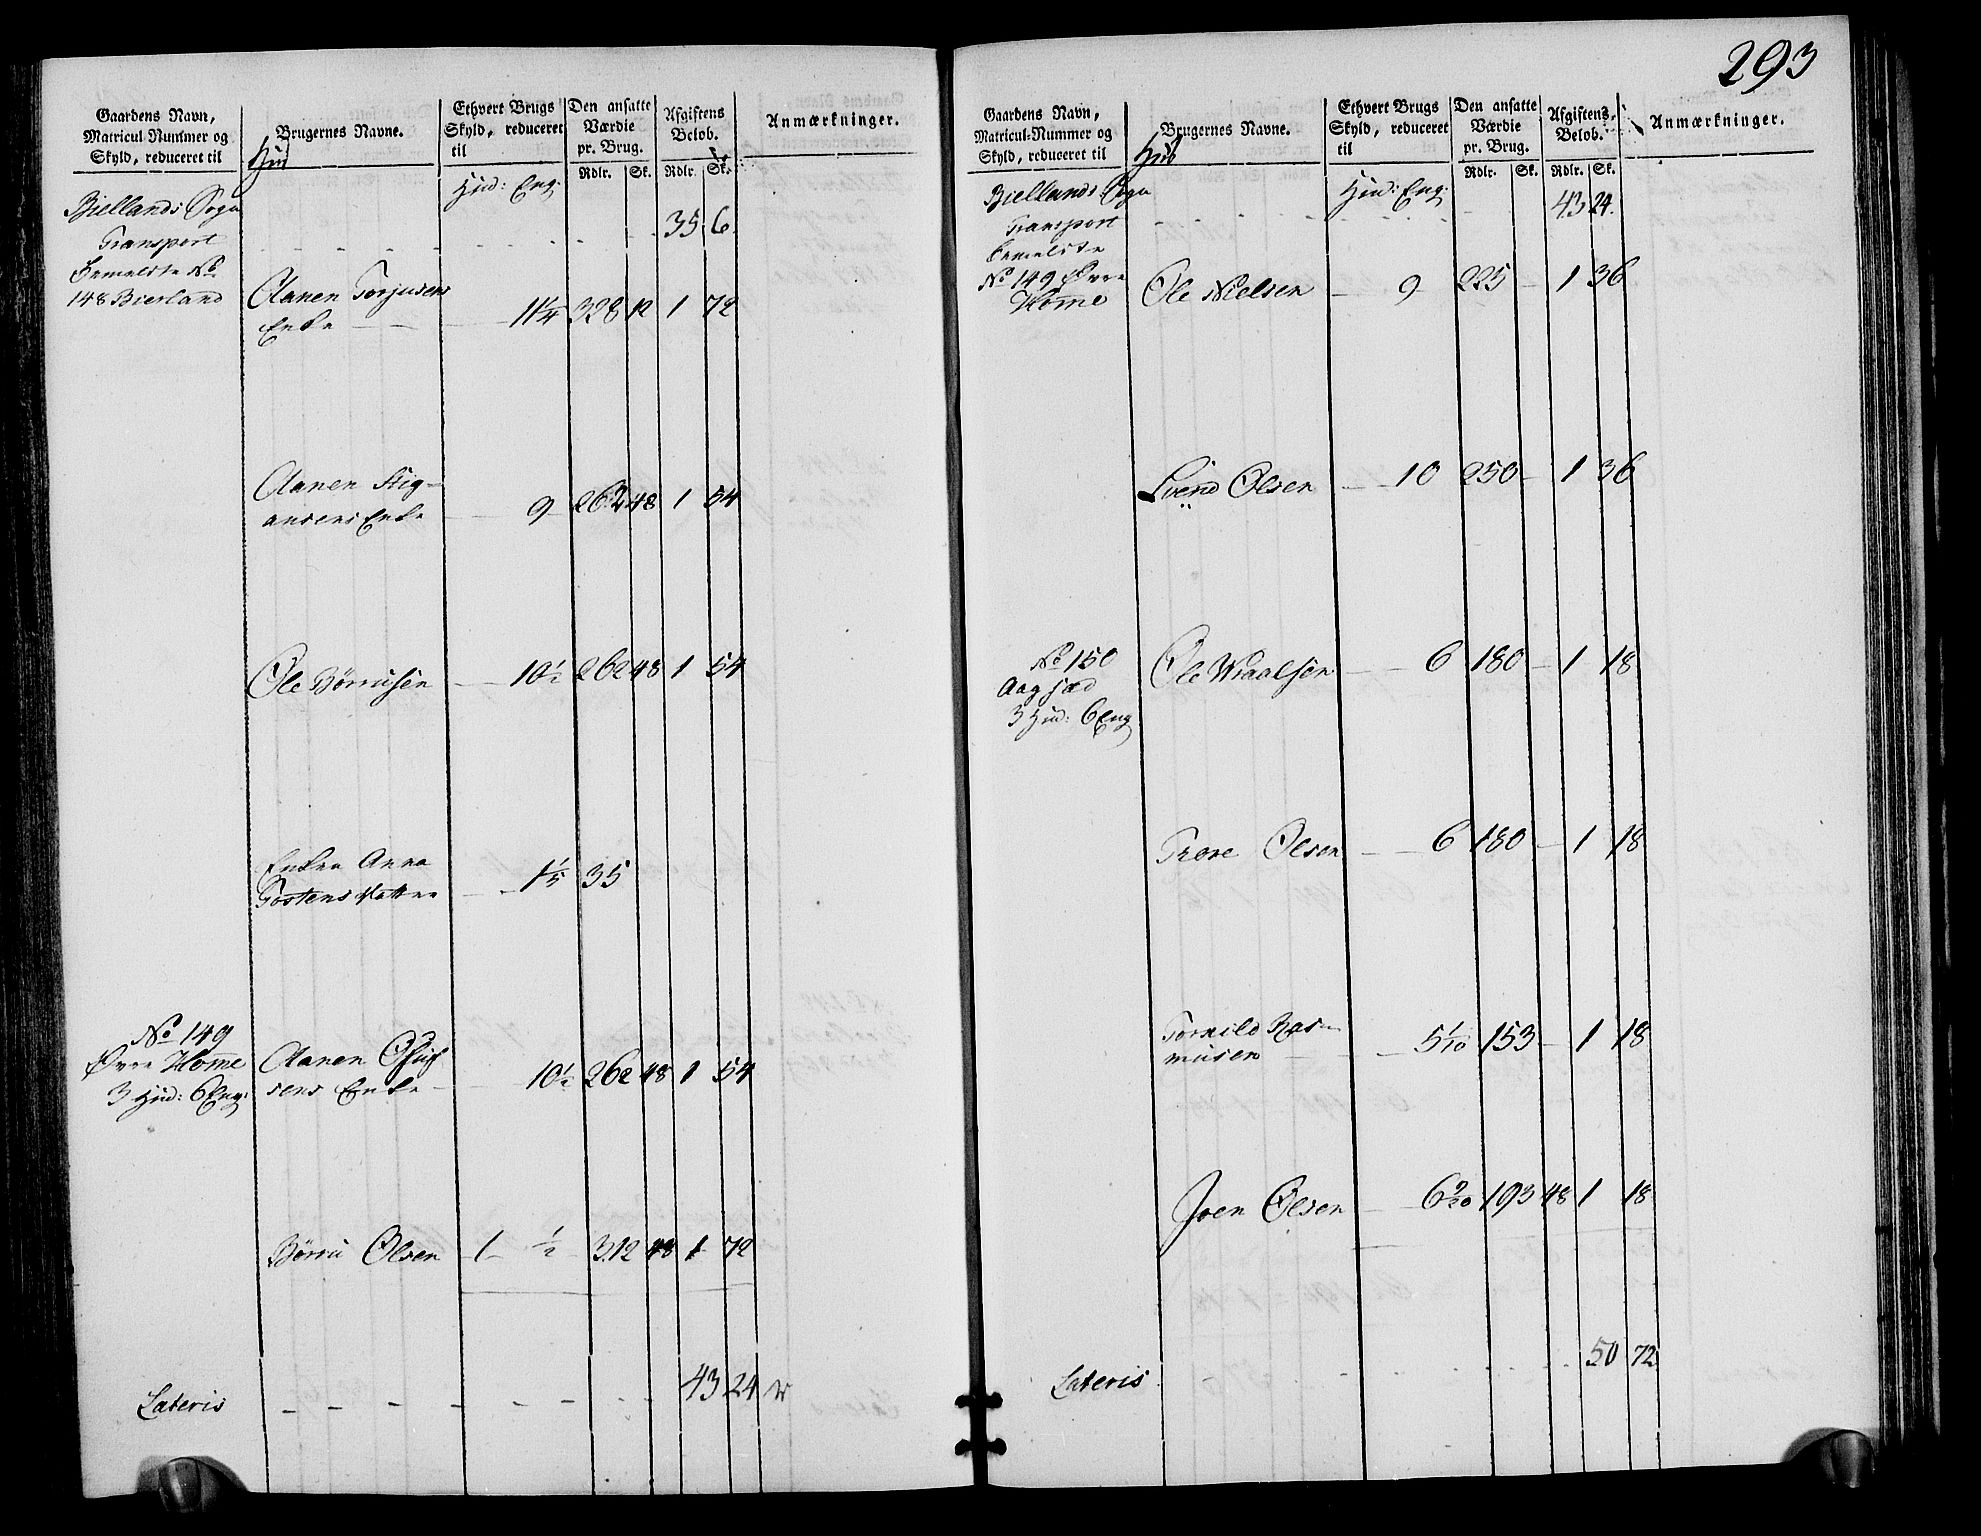 Gaardens Navn, Matricul-Nummer og Skyld, reduceret til
Hud
Brugernes Navne.
Ethvert Brugs Skyld, reduceret til
Den ansatte Værdie pr. Brug.
Rdlr. Sk.
Afgiftens Beløb.
Rdlr. Sk.
Anmærkninger.
Hud: Eng:
Biellands Sogn
Transport - - - 35 6
bemeldte No
148 Bierland
Aanen Torjusens
Enke - 11 1/4 328 12 1 72
Aanen Stig-
ansens Enke - 9 262 48 1 54
Ole Børrusen - 10 1/2 262 48 1 54
Enken Anna
Tostens Datter - 1 1/5 35
No 149
Øvre Home
3 Hud: 6 Eng:
Aanen
sens Enke - 10 1/2 262 48 1 54
Børru Olsen 1 - 1/2 312 48 1 72
Lateris - - - 43 24
293
Gaardens Navn, Matricul-Nummer og Skyld, reduceret til
Hud
Brugernes Navne.
Ethvert Brugs Skyld, reduceret til
Den ansatte Værdie pr. Brug.
Rdlr. Sk.
Afgiftens Beløb.
Rdlr. Sk.
Anmærkninger.
Hud: Eng:
Biellands Sogn
Transport - - - 43 24
bemeldte
No 149 Øvre
Home
Ole Nielsen - 9 225 - 1 36
Svend Olsen - 10 250 - 1 36
No 150
Aagsæd
3 Hud: 6 Eng
Ole Wraalsen - 6 180 - 1 18
Trove Olsen - 6 180 - 1 18
Tornild Ras-
musen - 5 1/10 153 - 1 18
Joen Olsen - 6 9/20 193 48 1 18
Lateris - - - 50 72